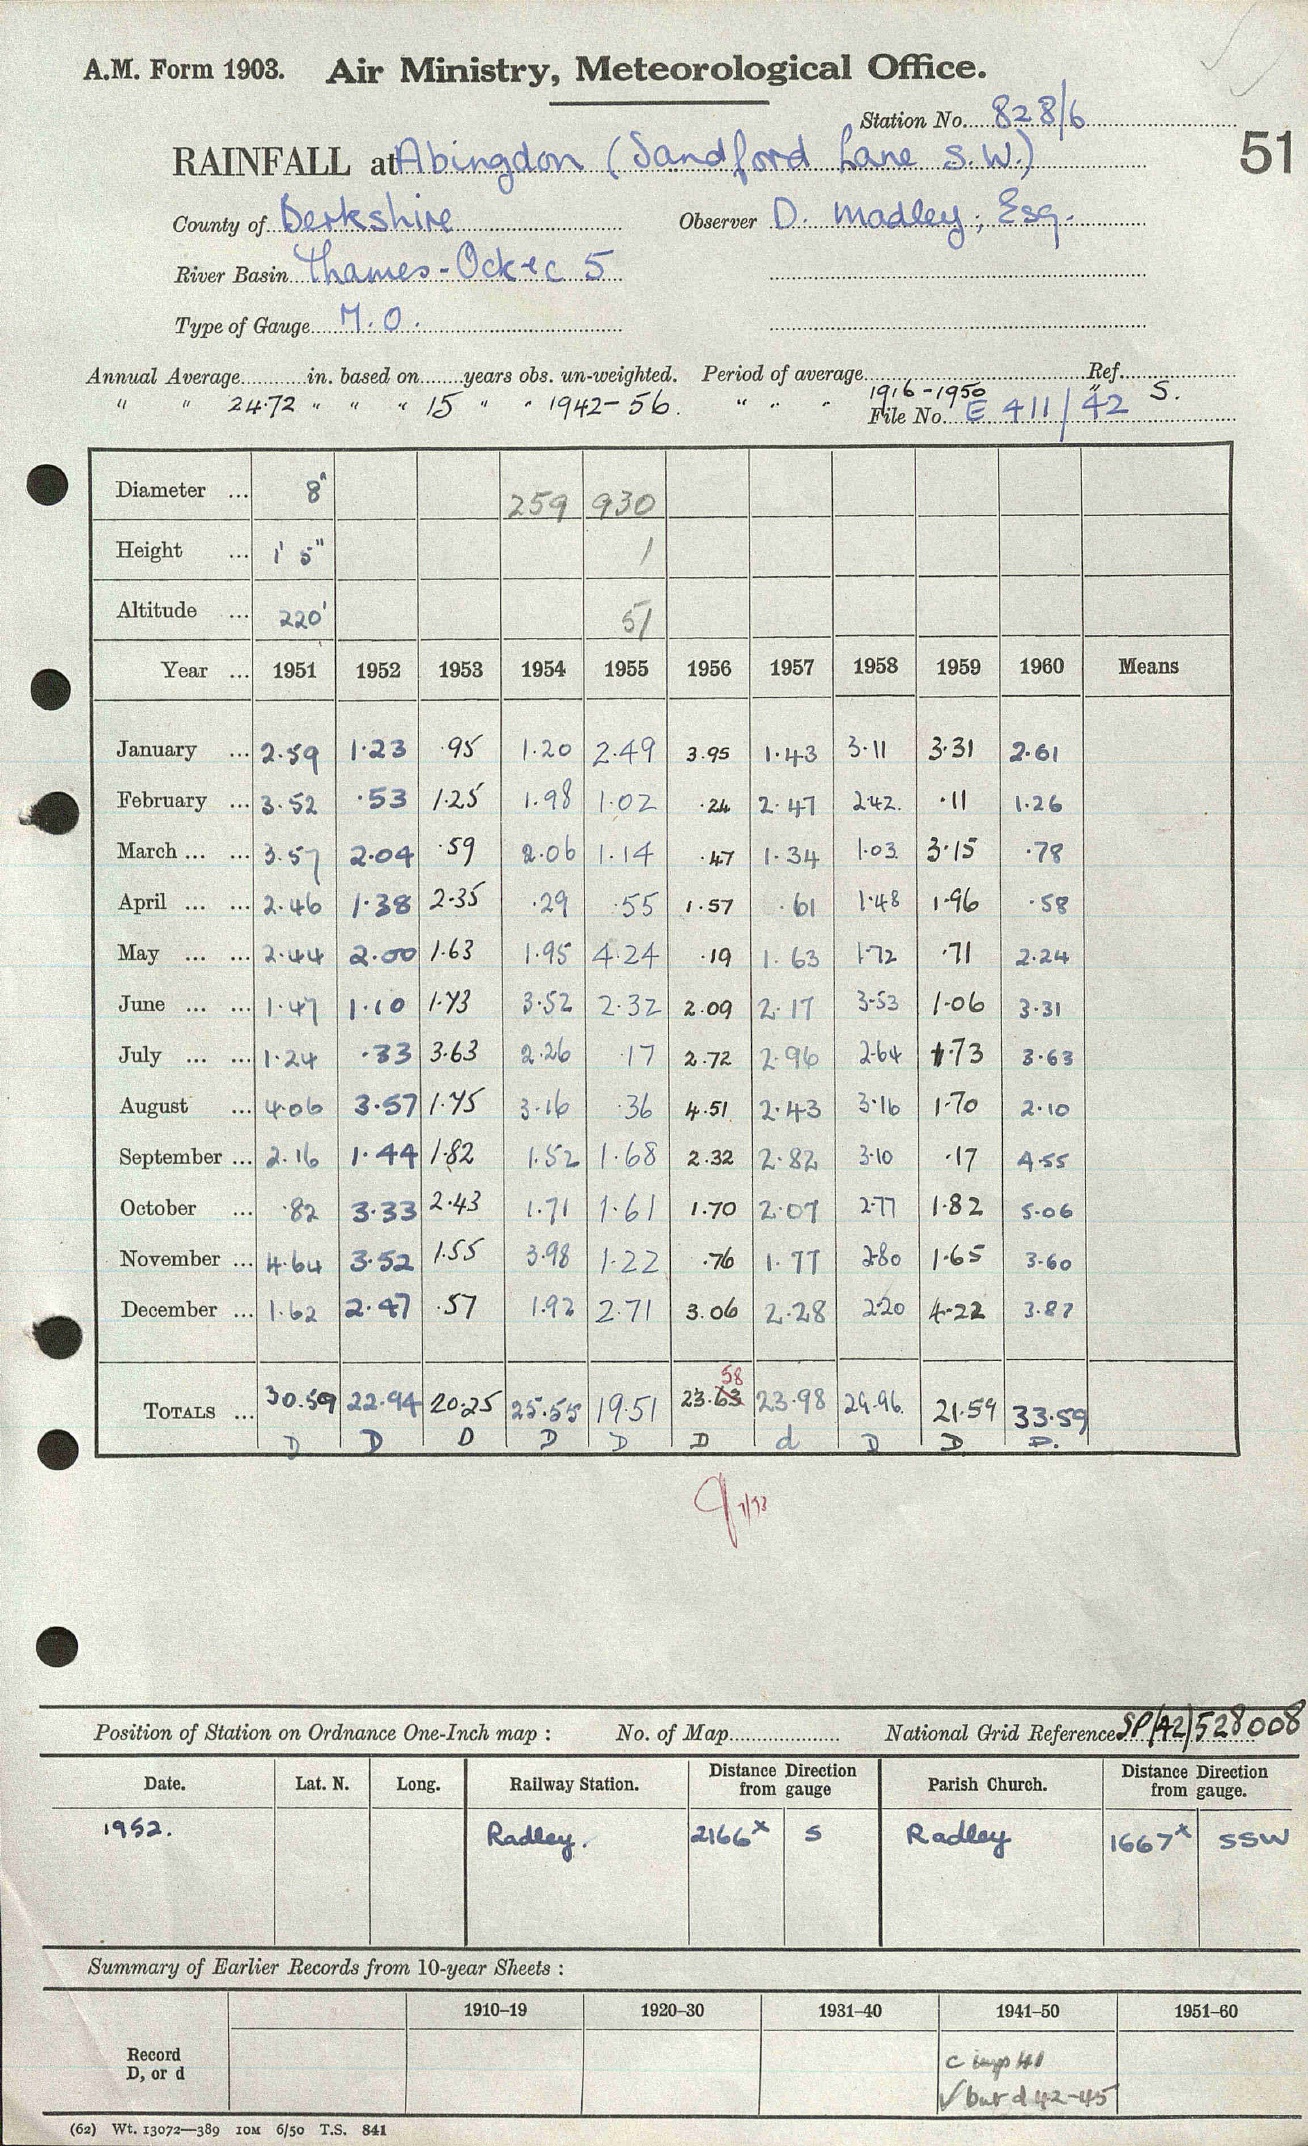 A.M. Form 1903. Air Ministry, Meteorological Office.
Station No. 828/6
51
RAINFALL at Abingdon (Sandford Lane S.W.)
County of Berkshire Observer D. Madley, Esq.
River Basin Thames-Ock etc 5
Type of Gauge M.O.
Annual Average in. based on years obs. un-weighted. Period of average Ref.
" " 24.72 " " " 15 " " 1942-56. " " " 1916-1950 " S.
File No. E 411/42
Diameter ... 8" 259 930
Height ... 1' 5" 1
Altitude ... 220' 51
Year ... 1951 1952 1953 1954 1955 1956 1957 1958 1959 1960 Means
January ... 2.59 1.23 .95 1.20 2.49 3.95 1.43 3.11 3.31 2.61
February ... 3.52 .53 1.25 1.98 1.02 .24 2.47 2.42. .11 1.26
March ... ... 3.57 2.04 .59 2.06 1.14 .47 1.34 1.03 3.15 .78
April ... ... 2.46 1.38 2.35 .29 .55 1.57 .61 1.48 1.96 .58
May ... ... 2.44 2.00 1.63 1.95 4.24 .19 1.63 1.72 .71 2.24
June ... ... 1.47 1.10 1.73 3.52 2.32 2.09 2.17 3.53 1.06 3.31
July ... ... 1.24 .33 3.63 2.26 .17 2.72 2.96 2.64 1.73 3.63
August ... 4.06 3.57 1.75 3.16 .36 4.51 2.43 3.16 1.70 2.10
September ... 2.16 1.44 1.82 1.52 1.68 2.32 2.82 3.10 .17 4.55
October ... .82 3.33 2.43 1.71 1.61 1.70 2.07 2.77 1.82 5.06
November ... 4.64 3.52 1.55 3.98 1.22 .76 1.77 2.80 1.65 3.60
December ... 1.62 2.47 .57 1.92 2.71 3.06 2.28 2.20 4.22 3.87
58
TOTALS ... 30.59 22.94 20.25 25.55 19.51 23.63 23.98 29.96. 21.59 33.59
D D D D D D d D D D.
Position of Station on Ordnance One-Inch map : No. of Map National Grid Reference SP(42)528008
Date. Lat. N. Long. Railway Station. Distance from Direction gauge Parish Church. Distance from Direction gauge.
1952. Radley. 2166x S Radley 1667x SSW
Summary of Earlier Records from 10-year Sheets :
1910–19 1920–30 1931–40 1941–50 1951–60
Record
D, or d
c imps 41
√ but d 42-45
(62) Wt. 13072—389 10M 6/50 T.S. 841